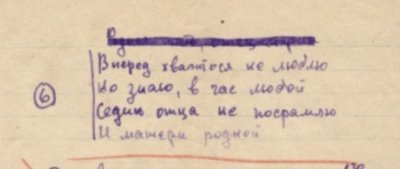 Вперед хвалится не люблю
6 Но знаю, в час любой
Седин отца не посрамлю
И матери родной